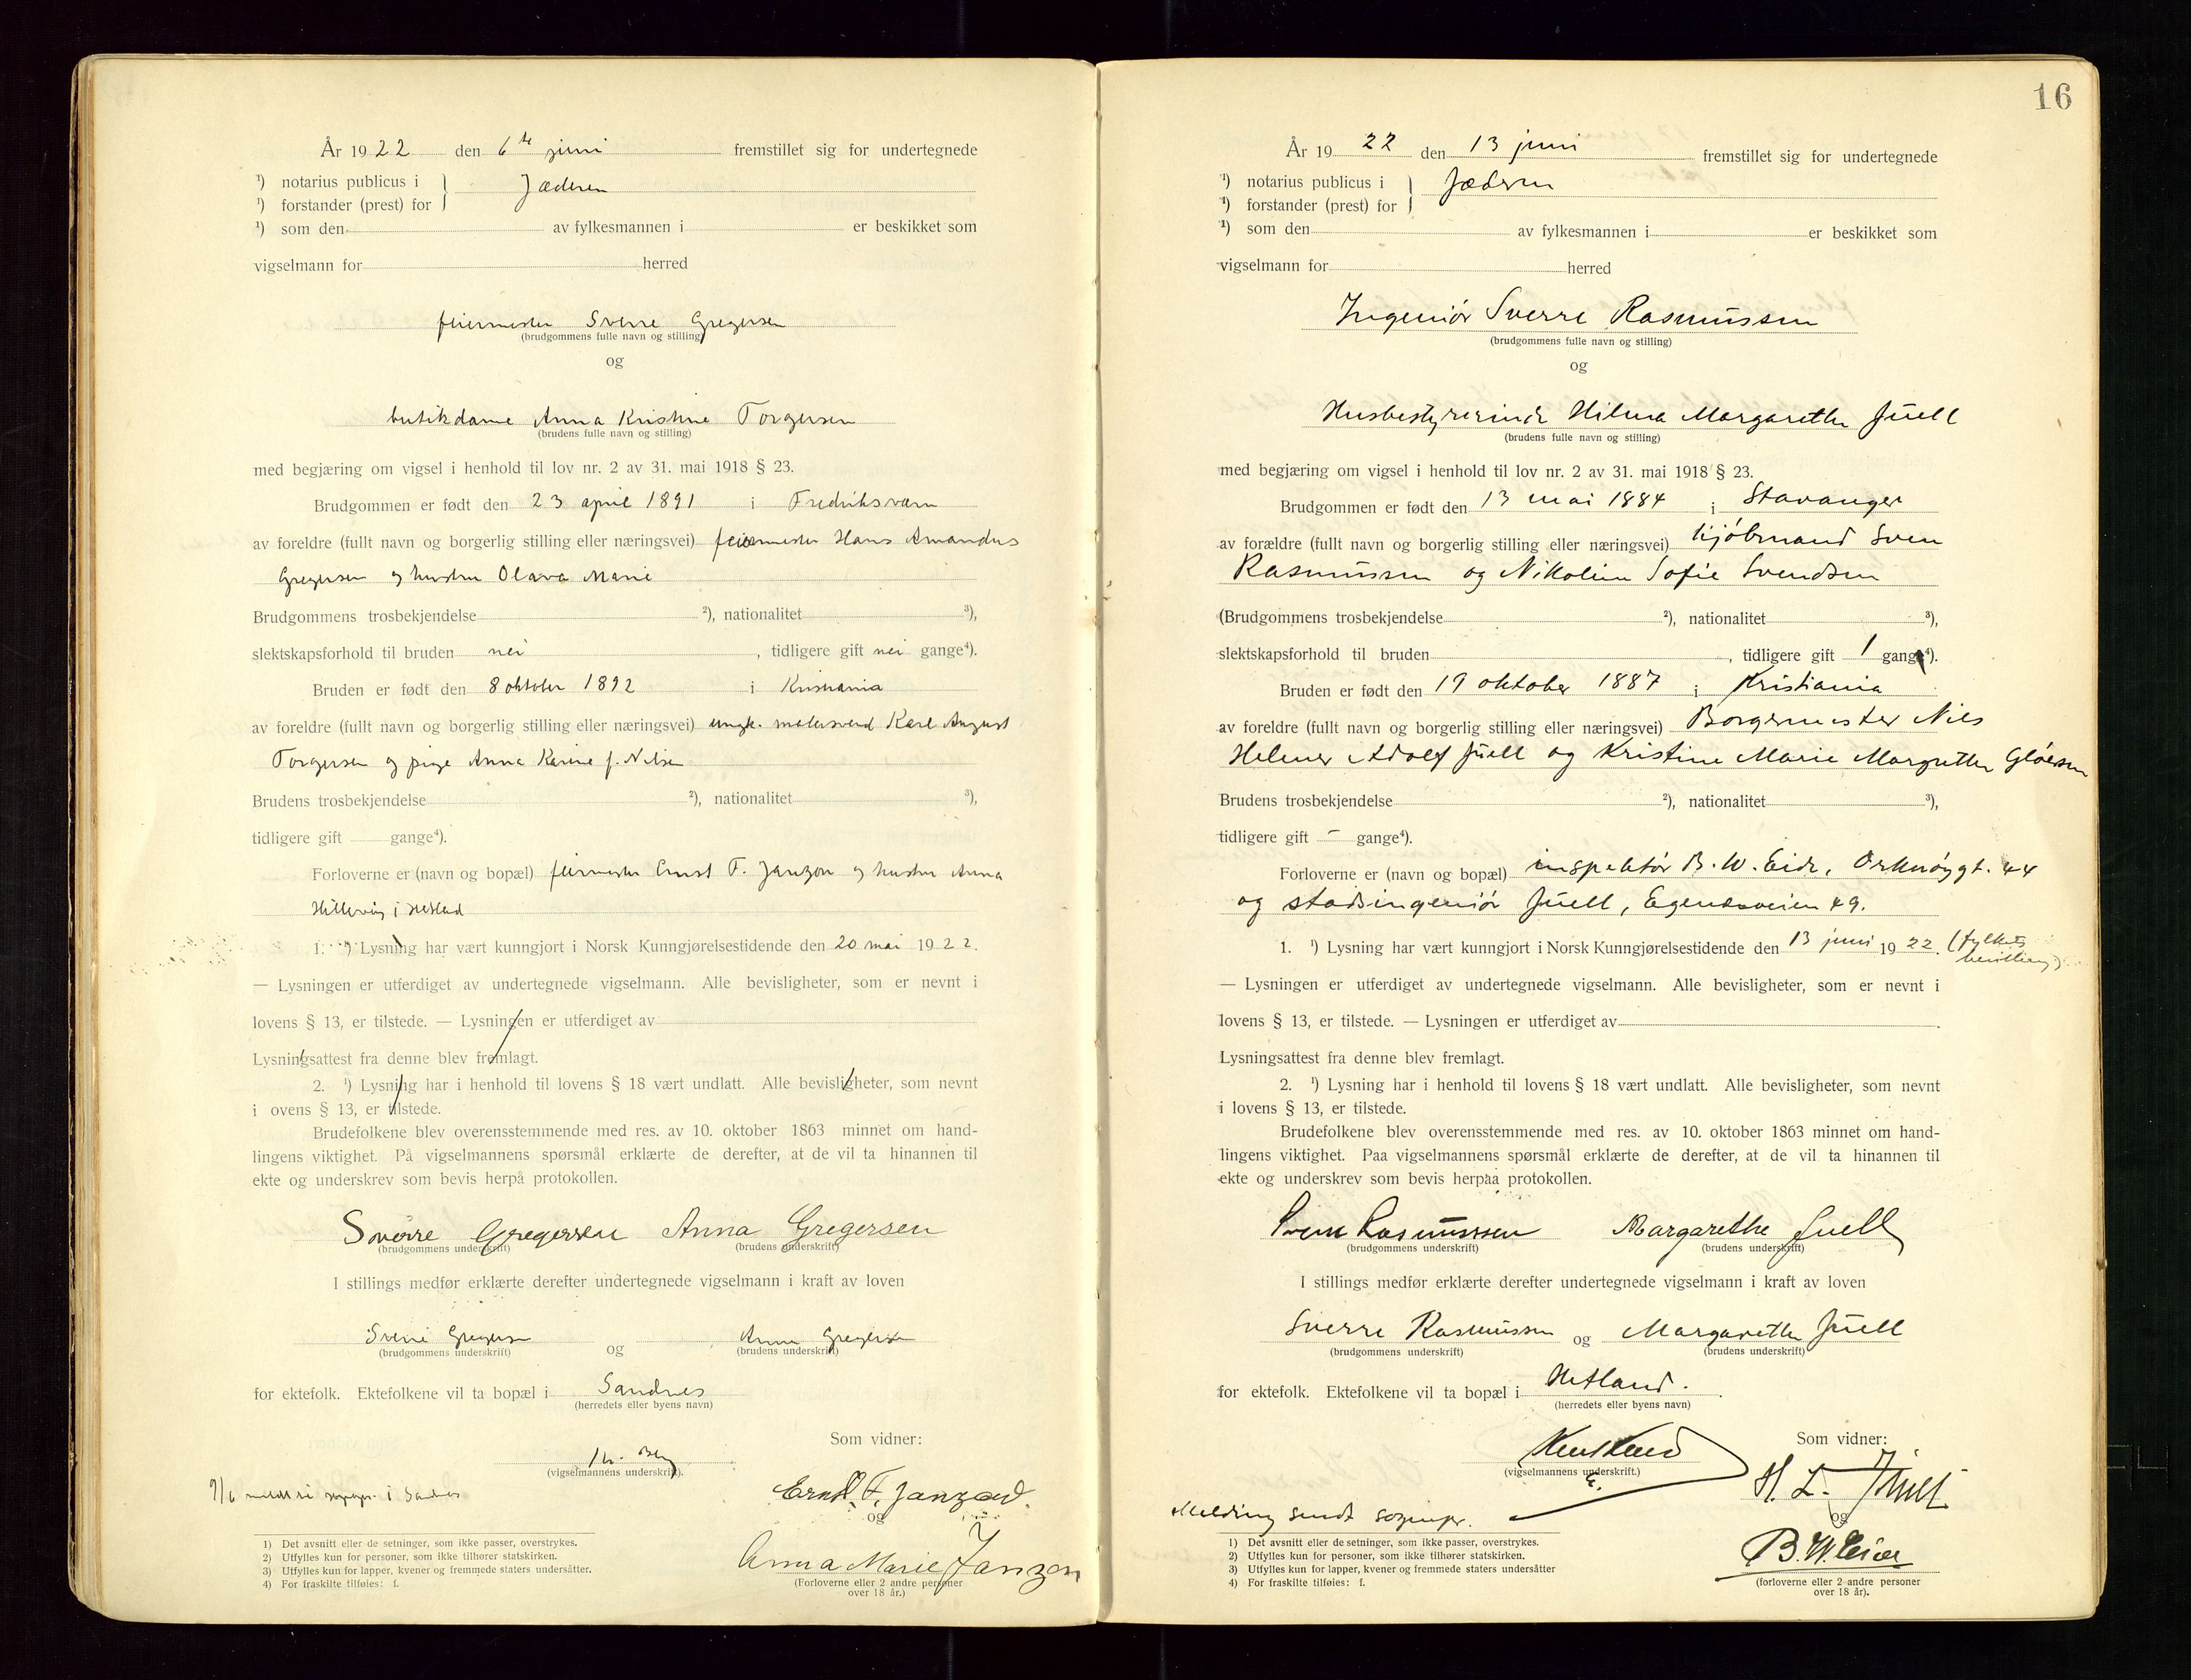 År 1922 den 6te juni fremstillet sig for undertegnede
¹) notarius publicus i } Jæderen
¹) forstander (prest) for
¹) som den av fylkesmannen i er beskikket som
vigselmann for herred
feiermester Sverre Gregersen
(brudgommens fulle navn og stilling)
og
butikdame Anna Kristine Torgersen
(brudens fulle navn og stilling)
med begjæring om vigsel i henhold til lov nr. 2 av 31. mai 1918 § 23.
Brudgommen er født den 23 april 1891 i Fredriksværn
av foreldre (fullt navn og borgerlig stilling eller næringsvei) feiermester Hans Amandus
Gregersen og hustru Olava Marie
Brudgommens trosbekjendelse ²), nationalitet ³),
slektskapsforhold til bruden nei , tidligere gift nei gange⁴).
Bruden er født den 8 oktober 1892 i Kristiania
av foreldre (fullt navn og borgerlig stilling eller næringsvei) ungk. malersvend Karl August
Torgersen og pige Anna Karine f. Nilsen
Brudens trosbekjendelse ²), nationalitet ³),
tidligere gift gange⁴).
Forloverne er (navn og bopæl) feiermester Ernst F. Janzon og hustru Anna
Hillevåg i Hetland
1. ¹) Lysning har vært kunngjort i Norsk Kunngjørelsestidende den 20 mai 1922.
— Lysningen er utferdiget av undertegnede vigselmann. Alle bevisligheter, som er nevnt i
lovens § 13, er tilstede. — Lysningen er utferdiget av
Lysningsattest fra denne blev fremlagt.
2. ¹) Lysning har i henhold til lovens § 18 vært undlatt. Alle bevisligheter, som nevnt
i ovens § 13, er tilstede.
Brudefolkene blev overensstemmende med res. av 10. oktober 1863 minnet om hand-
lingens viktighet. På vigselmannens spørsmål erklærte de derefter, at de vil ta hinannen til
ekte og underskrev som bevis herpå protokollen.
Sverre Gregersen Anna Gregersen
(brudgommens underskrift) (brudens underskrift)
I stillings medfør erklærte derefter undertegnede vigselmann i kraft av loven
Sverre Gregersen og Anna Gregersen
(brudgommens underskrift) (brudens underskrift)
for ektefolk. Ektefolkene vil ta bopæl i Sandnes
(herredets eller byens navn)
Som vidner:
(vigselmannens underskrift).
9/6 meldt sognepr. i Sandnes
Ernst F. Janzon.
og
Anna Marie Janzon
(Forloverne eller 2 andre personer
over 18 år.)
1) Det avsnitt eller de setninger, som ikke passer, overstrykes.
2) Utfylles kun for personer, som ikke tilhører statskirken.
3) Utfylles kun for lapper, kvener og fremmede staters undersåtter.
4) For fraskilte tilføies: f.
16
År 1922 den 13 juni fremstillet sig for undertegnede
¹) notarius publicus i } Jæderen
¹) forstander (prest) for
¹) som den av fylkesmannen i er beskikket som
vigselmann for herred
Ingeniør Sverre Rasmussen
(brudgommens fulle navn og stilling)
og
Husbestyrerinde Hilma Margarethe Juell
(brudens fulle navn og stilling)
med begjæring om vigsel i henhold til lov nr. 2 av 31. mai 1918 § 23.
Brudgommen er født den 13 mai 1884 i Stavanger
av forældre (fullt navn og borgerlig stilling eller næringsvei) kjøbmand Sven
Rasmussen og Nikoline Sofie Svendsen
(Brudgommens trosbekjendelse ²), nationalitet ³),
slektskapsforhold til bruden , tidligere gift 1 gange⁴).
Bruden er født den 19 oktober 1887 i Kristiania
av foreldre (fullt navn og borgerlig stilling eller næringsvei) Borgermester Nils
Helmer Adolf Juell og Kristine Marie Margrethe Gløersen
Brudens trosbekjendelse ²), nationalitet ³),
tidligere gift – gange⁴).
Forloverne er (navn og bopæl) inspektør B. W. Eide, Orknøygt. 44
og stadsingeniør Juell, Egenesveien 49.
1. ¹) Lysning har vært kunngjort i Norsk Kunngjørelsestidende den 13 juni 1922. (fylkets
bevilling)
— Lysningen er utferdiget av undertegnede vigselmann. Alle bevisligheter, som er nevnt i
lovens § 13, er tilstede. — Lysningen er utferdiget av .
Lysningsattest fra denne blev fremlagt.
2. ¹) Lysning har i henhold til lovens § 18 vært undlatt. Alle bevisligheter, som nevnt
i lovens § 13, er tilstede.
Brudefolkene blev overensstemmende med res. av 10. oktober 1863 minnet om hand-
lingens viktighet. Paa vigselmannens spørsmål erklærte de derefter, at de vil ta hinannen til
ekte og underskrev som bevis herpaa protokollen.
Sverre Rasmussen Margarethe Juell
(brudgommens underskrift) (brudens underskrift)
I stillings medfør erklærte derefter undertegnede vigselmann i kraft av loven
Sverre Rasmussen og Margarethe Juell
(brudgommens underskrift) (brudens underskrift)
for ektefolk. Ektefolkene vil ta bopæl i Hetland.
(herredets eller byens navn)
Som vidner:
(vigselmannens underskrift.)
Melding sendt sognepr.
Juell
og
B. W. Eide
(forloverne eller 2 andre personer
over 18 år).
1) Det avsnitt eller de setninger, som ikke passer, overstrykes.
2) Utfylles kun for personer, som ikke tilhører statskirken.
3) Utfylles kun for lapper, kvener og fremmede staters undersåtter
4) For fraskilte tilføies: f.